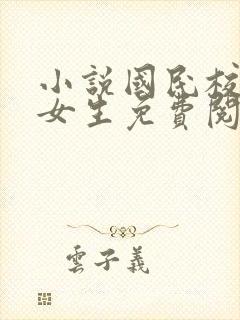 小說國民校
女生免費閱
雲子義